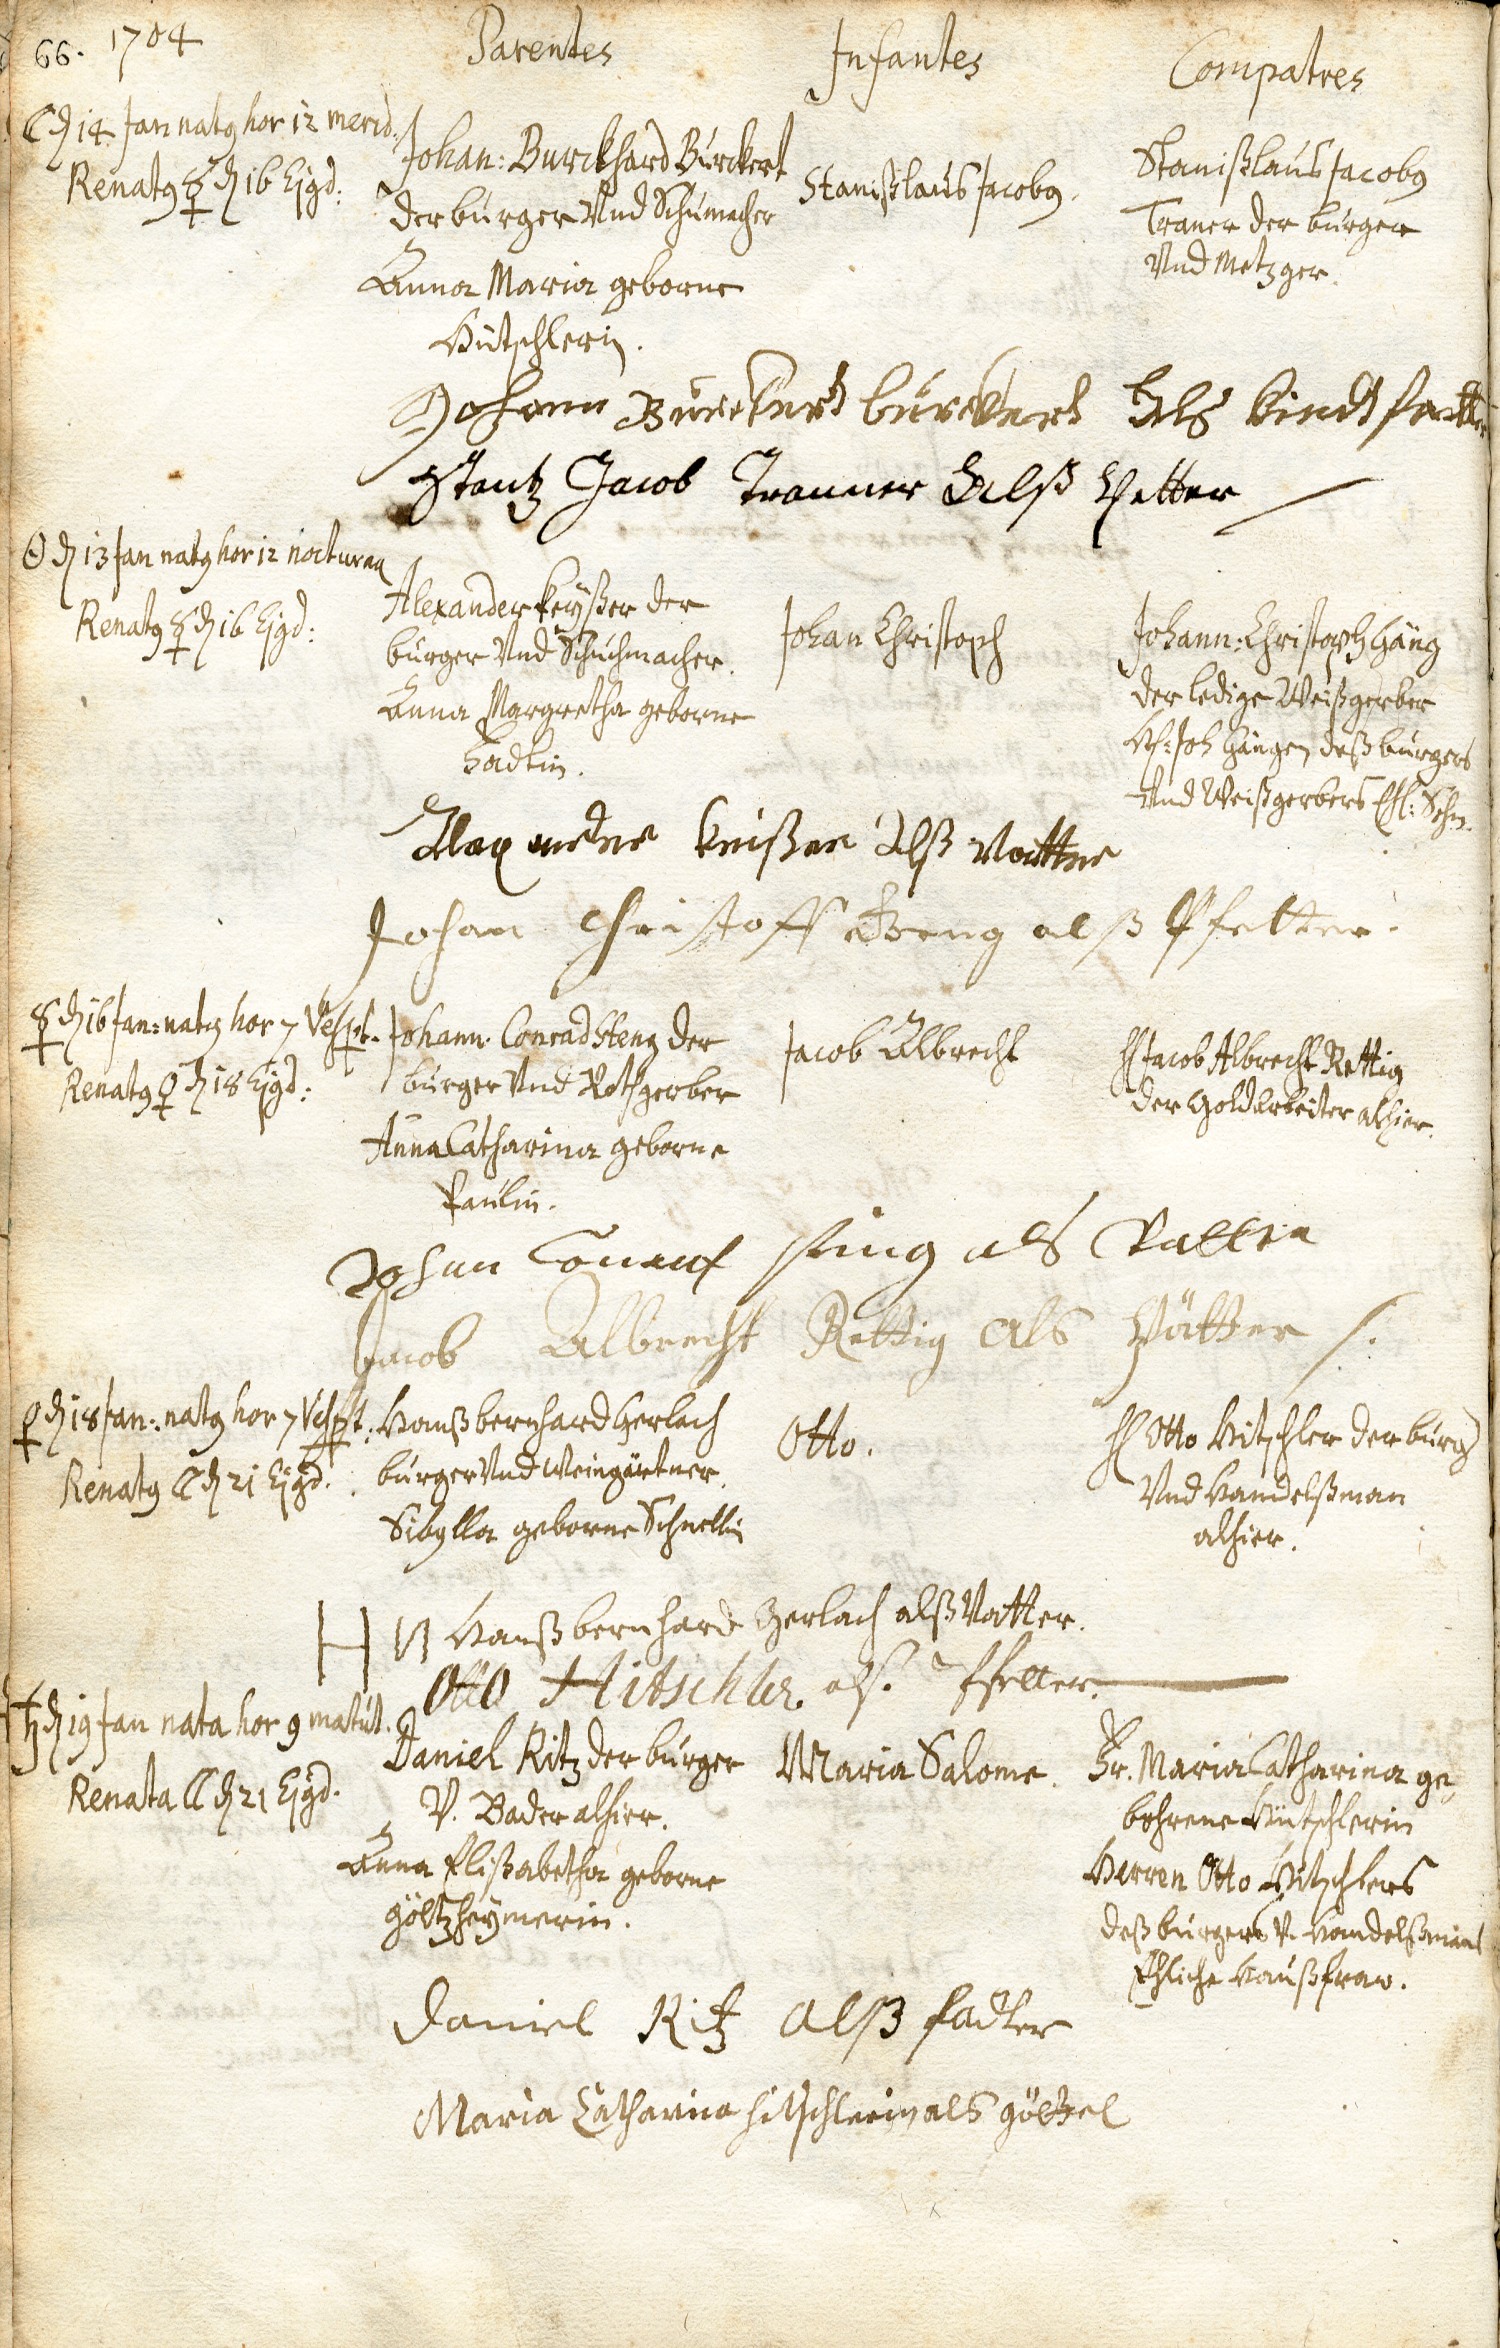 66. 1704
Parentes
Infantes
Compatres
☾ d 14 Jan natꝰ hor 12 merid.
Renatꝰ ☿ d 16 Ejꝰd:
Johan: Burckhard Bürckert
der burger Vnd Schumacher
Anna Maria geborne
Hütschlerin.
Stanißlaus Jacobꝰ.
Stanißlaus Jacobꝰ
Traner der burger
Vnd Metzger.
Johann Burckhert bürckhert Als Kindtsfatter
Stantz Jacob Tranner Alß Pfetter
☉ d 13 Jan natꝰ hor 12 nocturna
Renatꝰ ☿ d 16 Ejꝰd:
Alexander Keyßer der
burger Vnd Schuchmacher.
Anna Margretha geborne
Johan Christoph
Johann: Christoph Gäng
der ledige Weißgerber
Joh Gängen deß burgers
Vnd Weißgerbers Ehl: Sohn.
Alexander Keißer Alß Vatter
Johan Christoff Geng alß Pfetter.
☿ d 16 Jan: natꝰ hor 7 Vespt.
Renatꝰ ♀ d 18 Ejꝰd:
Johann Conrad Steng der
burger Vnd Rothgerber
Anna Catharina geborne
Paulin.
Jacob Albrecht
H Jacob Albrecht Rettig
der Goldarbeiter alhier.
Johan Conrad als Vatter
Jacob Albrecht Rettig als Pfätter
♀ d 18 Jan: natꝰ hor 7 Vespt:
Renatꝰ ☾ d 21 Ejꝰd.
Hanß bernhard Gerlach
burger Vnd Weingärtner.
Sibylla geborne Schnellin
Otto.
H Otto Hitschler der burger
Vnd Handelßman
alhier.
H Hanß bernhard Gerlach alß Vatter.
Otto Hitschler. als. Pfetter.
♄ d 19 Jan nata hor 9 matut.
Renata ☾ d 21 Ejꝰd.
Daniel Ritz der burger
V. Bader alhier.
Anna Elisabetha geborne
Göltzheymerin.
Maria Salome.
Fr. Maria Catharina ge-
bohrene Hütschlerin
Herren Otto Hitschlers
deß burgers V. Handelßmans
Ehliche Haußfraw.
Daniel Ritz alß fadter
Maria Catharina hitschlerin als göttel